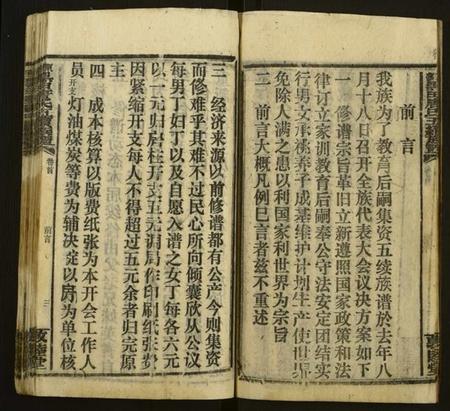 前言
我族为了教育后嗣集资五续族谱於去年八
月十八日召开全族代表大会议决方案如下
一 修谱宗旨革旧立新遵照国家政策和法
律订立家训教育后嗣奉公守法安定团结实
行男女承祧养子成基维护计划生产使世界
免除人满之患以利国家利世界为宗旨
二 前言大概凡例已言者兹不重述
三 经济来源以前修谱都有公产今则集资
而修难乎其难不过民心所向倾囊欣从公议
每男丁妇丁以及自愿入谱之女丁每各六元
以一元归居柱开支五元谱局作印刷纸张费
因紧缩开支每人不得超过五元余者归完原
主
四 成本核算以版费纸张为本开会工作人
员开支灯油煤炭等费为辅决定以房为单位核
卷首
前言
三
敦睦堂
卷首